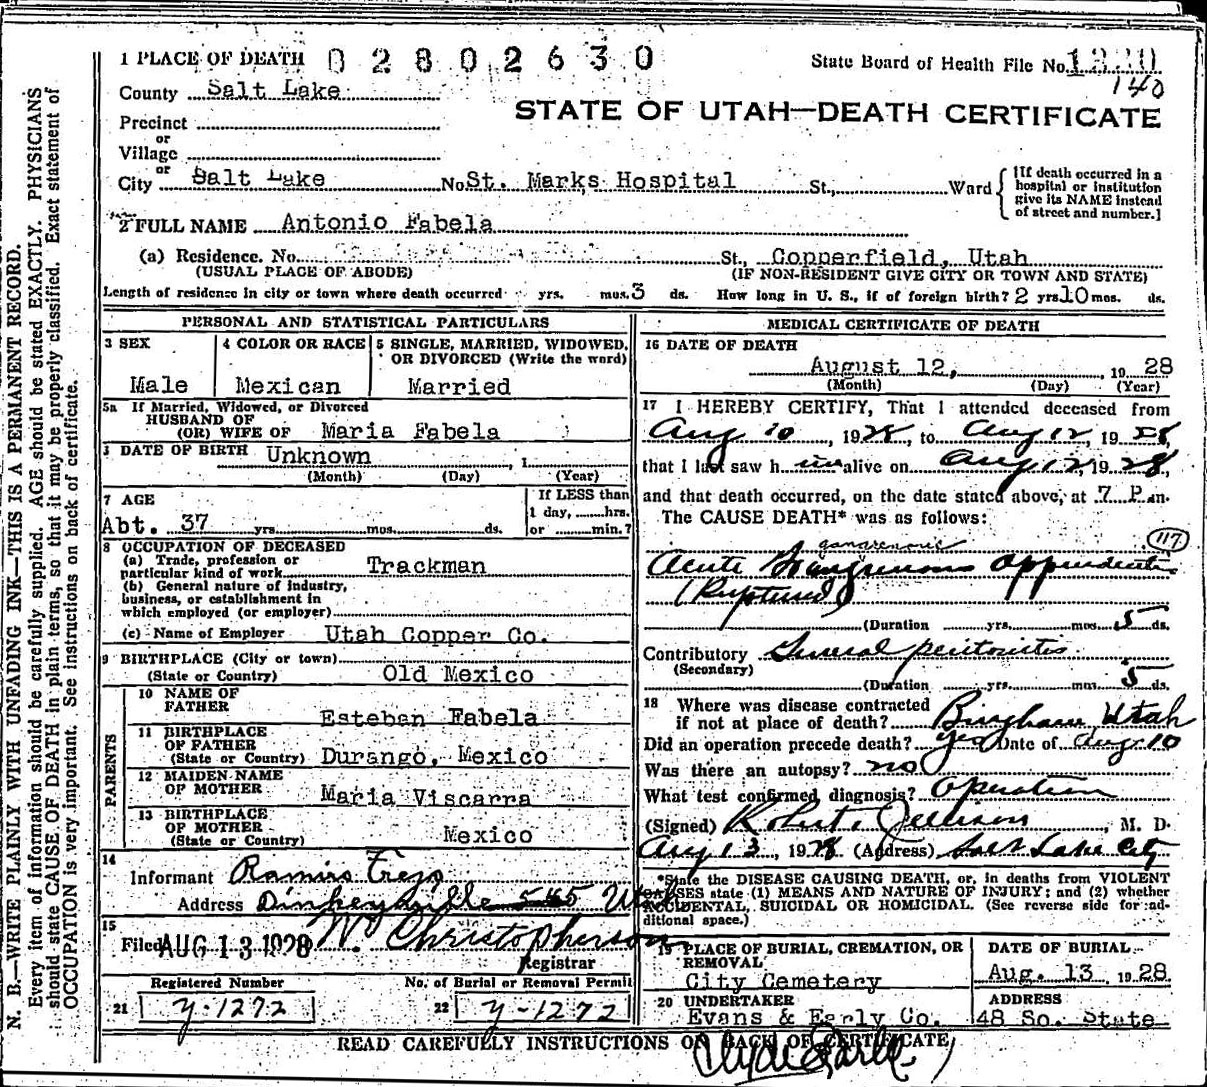 1 PLACE OF DEATH 02802630
State Board of Health File No.
140
County Salt Lake
STATE OF UTAH—DEATH CERTIFICATE
Precinct
or
Village
or
City Salt Lake No. St. Marks Hospital St., Ward
[If death occurred in a hospital or institution give its NAME instead of street and number.]
2 FULL NAME Antonio Fabela
(a) Residence. No. St., Copperfield, Utah
(USUAL PLACE OF ABODE) (IF NON-RESIDENT GIVE CITY OR TOWN AND STATE)
Length of residence in city or town where death occurred yrs. mos. 3 ds. How long in U. S., if of foreign birth? 2 yrs 10 mos. ds.
PERSONAL AND STATISTICAL PARTICULARS
3 SEX
Male
4 COLOR OR RACE
Mexican
5 SINGLE, MARRIED, WIDOWED, OR DIVORCED (Write the word)
Married
5a If Married, Widowed, or Divorced
HUSBAND OF
(OR) WIFE OF Maria Fabela
DATE OF BIRTH Unknown , 1
(Month) (Day) (Year)
7 AGE
Abt. 37 yrs. mos. ds.
If LESS than
1 day, hrs.
or min.?
8 OCCUPATION OF DECEASED
(a) Trade, profession or
particular kind of work Trackman
(b) General nature of industry,
business, or establishment in
which employed (or employer)
(c) Name of Employer Utah Copper Co.
9 BIRTHPLACE (City or town)
(State or Country) Old Mexico
PARENTS
10 NAME OF
FATHER Esteban Fabela
11 BIRTHPLACE
OF FATHER
(State or Country) Durango, Mexico
12 MAIDEN NAME
OF MOTHER Maria Viscarra
13 BIRTHPLACE
OF MOTHER
(State or Country) Mexico
14
Informant Ramiro Trejo
Address Dinkeyville 545 Utah
15
Filed AUG 13 1928 W. Christopherson
Registrar
Registered Number No. of Burial or Removal Permit
21 y-1272 22 y-1272
MEDICAL CERTIFICATE OF DEATH
16 DATE OF DEATH
August 12, , 19 28
(Month) (Day) (Year)
17 I HEREBY CERTIFY, That I attended deceased from
Aug 10 , 1928, to Aug 12, 1928,
that I last saw him alive on Aug 12, 1928
and that death occurred, on the date stated above, at 7 P.m.
The CAUSE DEATH* was as follows:
117
gangrenous
Acute Gangrenous Appendicitis
(Ruptured)
(Duration yrs. mos. 5 ds.
Contributory General peritonitis
(Secondary)
(Duration yrs. mos. 5 ds.
18 Where was disease contracted
if not at place of death? Bingham Utah
Did an operation precede death? yes Date of Aug 10
Was there an autopsy? no
What test confirmed diagnosis? Operation
(Signed) Robert , M. D.
Aug 13, 1928 (Address) Salt Lake City
*State the DISEASE CAUSING DEATH, or, in deaths from VIOLENT
CAUSES state (1) MEANS AND NATURE OF INJURY; and (2) whether
ACCIDENTAL, SUICIDAL OR HOMICIDAL. (See reverse side for ad-
ditional space.)
19 PLACE OF BURIAL, CREMATION, OR
REMOVAL
City Cemetery
DATE OF BURIAL
Aug. 13, 1928
20 UNDERTAKER
Evans & Early Co.
ADDRESS
48 So. State
READ CAREFULLY INSTRUCTIONS ON BACK OF CERTIFICATE
N. B.—WRITE PLAINLY WITH UNFADING INK—THIS IS A PERMANENT RECORD.
Every item of information should be carefully supplied. AGE should be stated EXACTLY. PHYSICIANS
should state CAUSE OF DEATH in plain terms, so that it may be properly classified. Exact statement of
OCCUPATION is very important. See instructions on back of certificate.